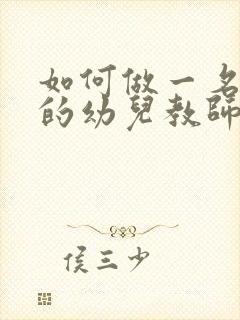 如何做一名
的幼兒教師
侯三少